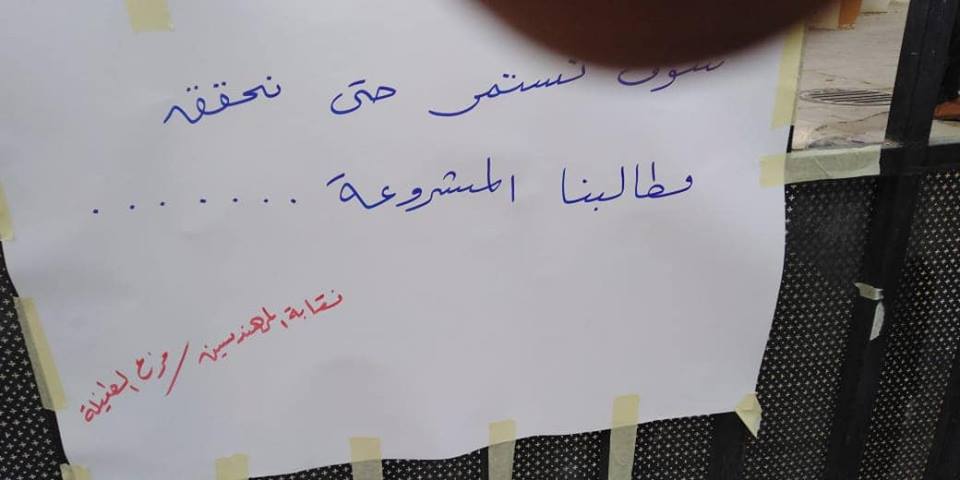 سوف نستمر حتى نحققه
مطالبنا المشروعة ........
نقابة المهندسين / فرع الطفيلة